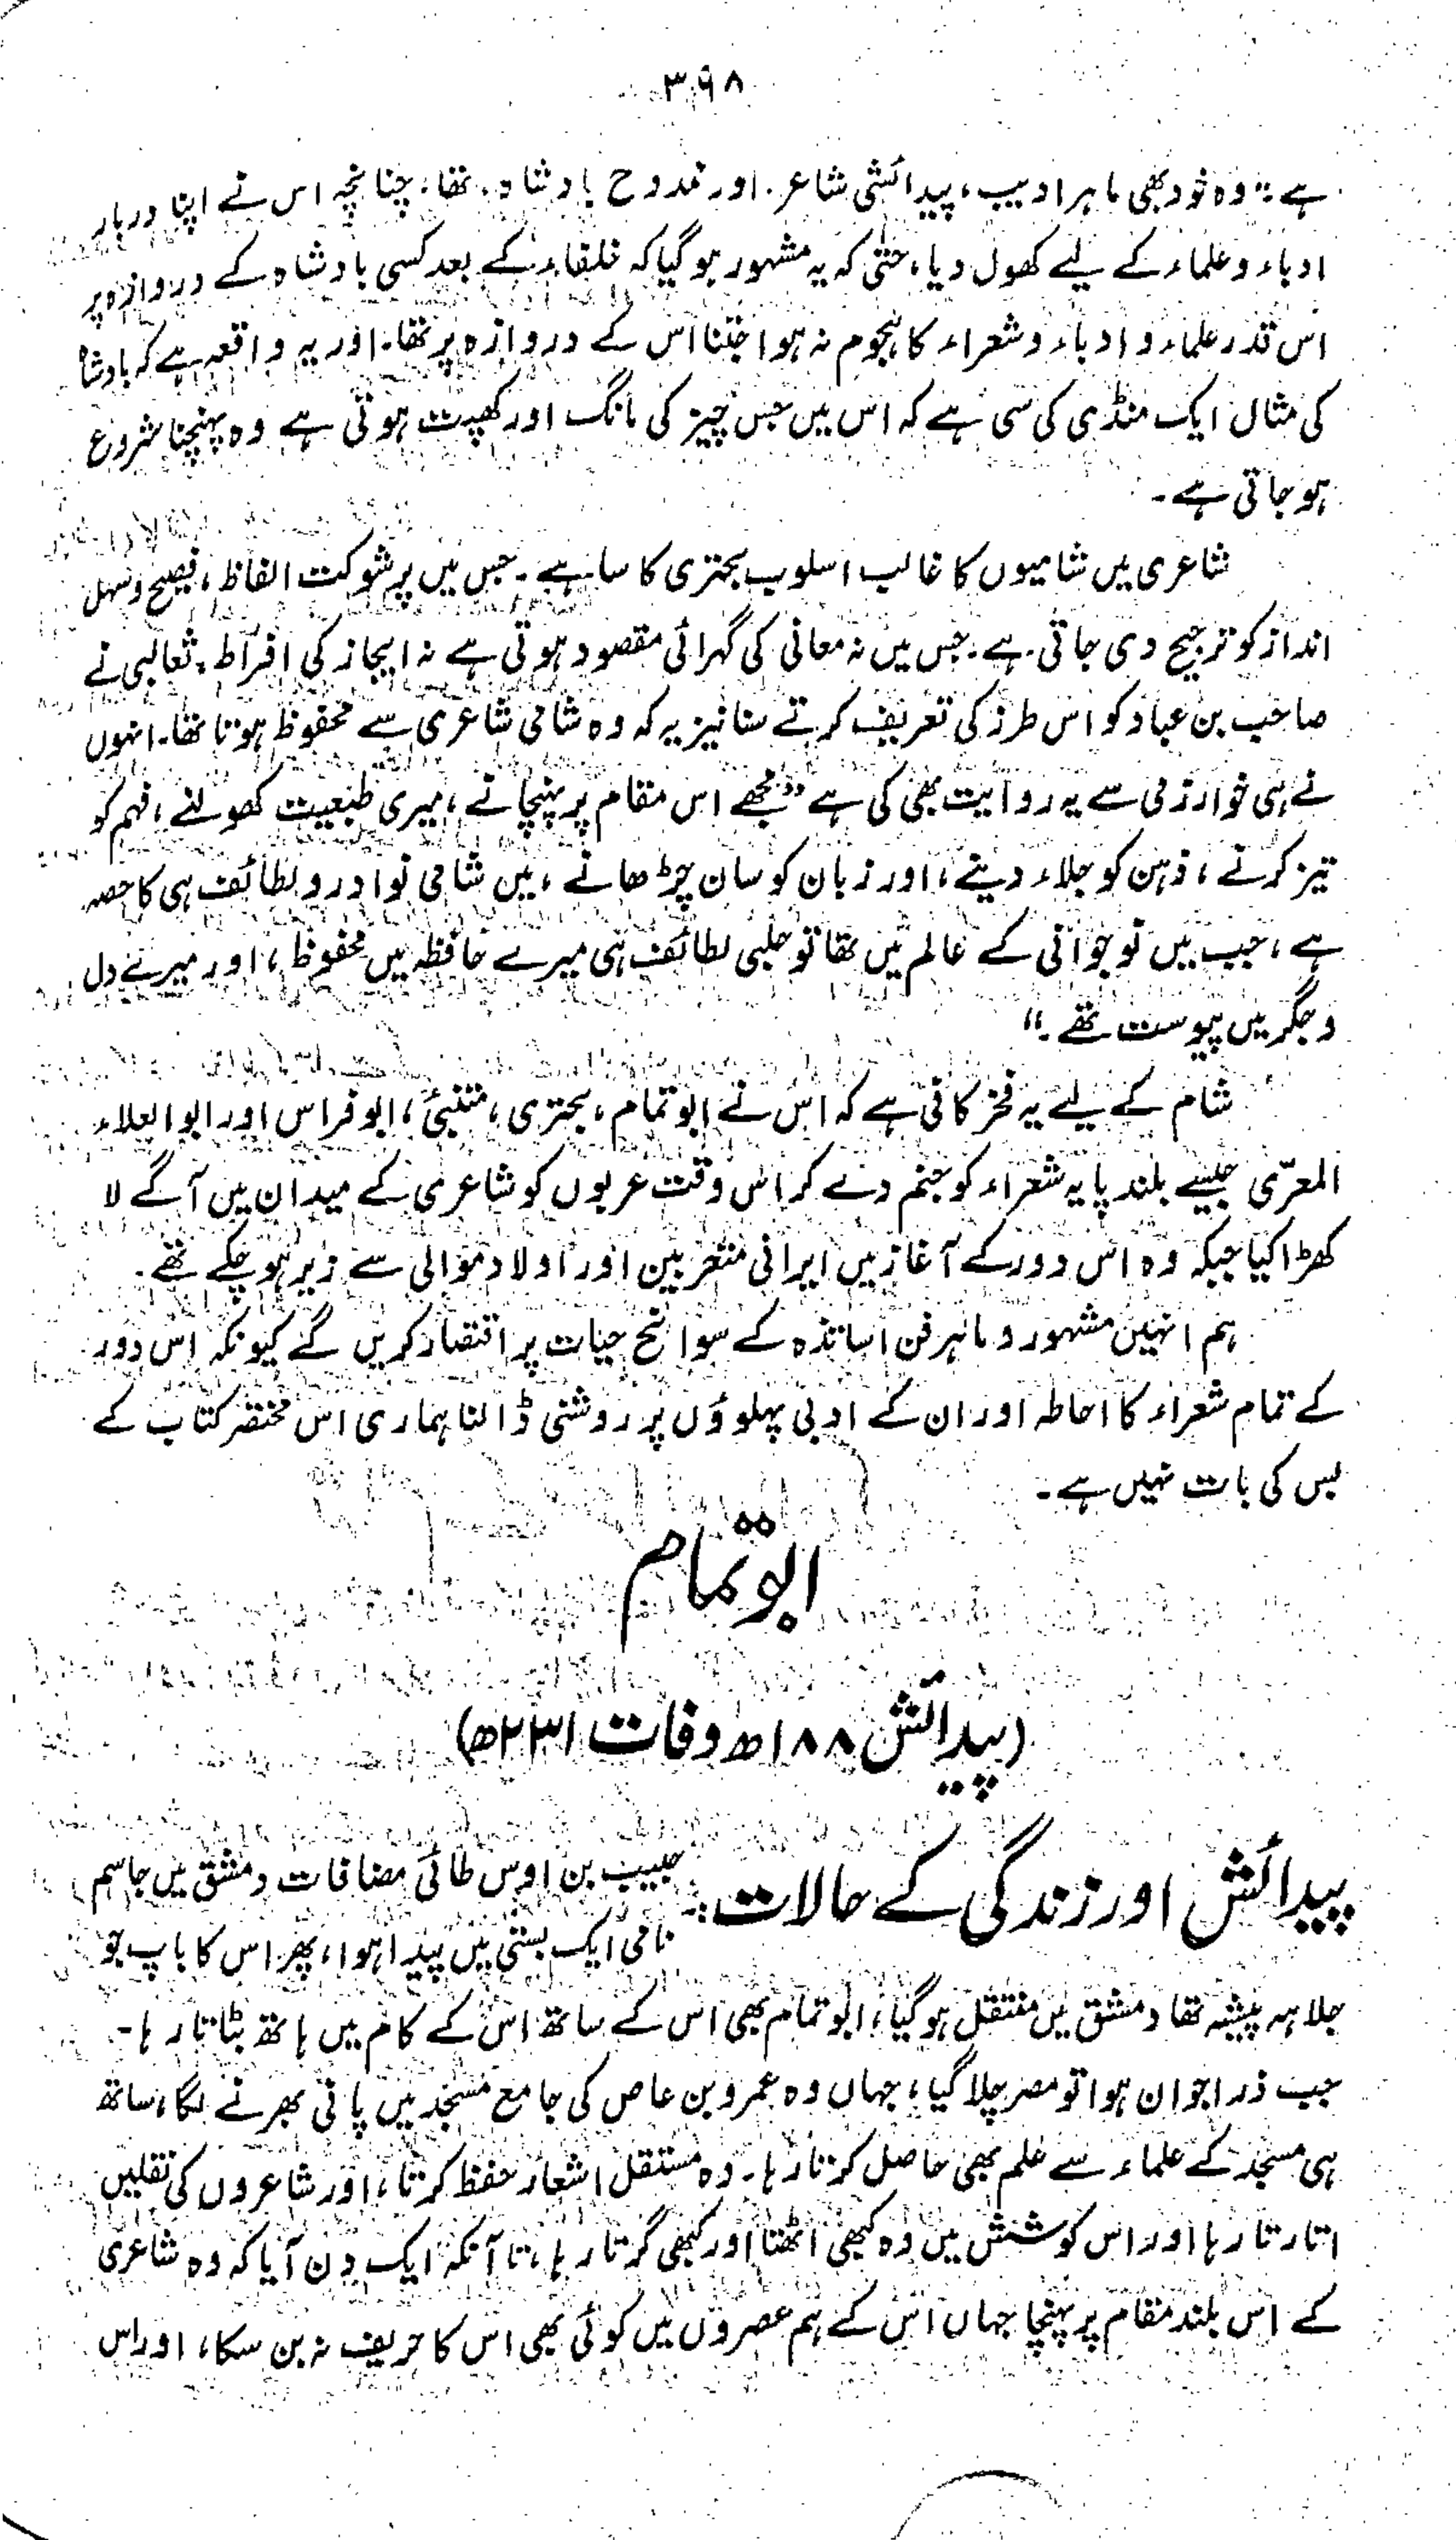 ۳۹۸
ہے۔" وہ خود بھی ماہر ادیب، پیدائشی شاعر۔ اور ممدوح بادشاہ تھا، چنانچہ اس نے اپنا دربار
ادباء و علماء کے لیے کھول دیا، حتٰی کہ یہ مشہور ہو گیا کہ خلفاء کے بعد کسی بادشاہ کے دروازہ پر
اس قدر علماء و ادباء و شعراء کا ہجوم نہ ہوا جتنا اس کے دروازہ پر تھا۔ اور یہ واقعہ ہے کہ بادشاہ
کی مثال ایک منڈی کی سی ہے کہ اس میں جس چیز کی مانگ اور کھپت ہوتی ہے وہ پہنچنا شروع
ہو جاتی ہے۔
شاعری میں شامیوں کا غالب اسلوب بحتری کا سا ہے۔ جس میں پرشوکت الفاظ، فصیح و سہل
انداز کو ترجیح دی جاتی ہے۔ جس میں نہ معانی کی گہرائی مقصود ہوتی ہے نہ ایجاز کی افراط۔ ثعالبی نے
صاحب بن عباد کو اس طرز کی تعریف کرتے سنا نیز یہ کہ وہ شامی شاعری سے محفوظ ہوتا تھا۔ انہوں
نے ہی خوارزمی سے یہ روایت بھی کی ہے "مجھے اس مقام پر پہنچانے، میری طبیعت کھولنے، فہم کو
تیز کرنے، ذہن کو جلاء دینے، اور زبان کو سان چڑھانے، میں شامی نوادر و لطائف ہی کا حصہ
ہے، جب میں نوجوانی کے عالم میں تھا تو حلبی لطائف ہی میرے حافظہ میں محفوظ، اور میرے دل
و جگر میں پیوست تھے۔"
شام کے لیے یہ فخر کافی ہے کہ اس نے ابو تمام، بحتری، متنبیٔ، ابو فراس اور ابو العلاء
المعرّی جیسے بلند پایہ شعراء کو جنم دے کر اس وقت عربوں کو شاعری کے میدان میں آگے لا
کھڑا کیا جبکہ وہ اس دور کے آغاز میں ایرانی متعربین اور اولاد موالی سے زیر ہو چکے تھے۔
ہم انہیں مشہور و ماہر فن اساتذہ کے سوانح حیات پر اقتصار کریں گے کیونکہ اس دور
کے تمام شعراء کا احاطہ اور ان کے ادبی پہلوؤں پر روشنی ڈالنا ہماری اس مختصر کتاب کے
بس کی بات نہیں ہے۔
ابو تمام
(پیدائش ۱۸۸ھ وفات ۲۳۱ھ)
پیدائش اور زندگی کے حالات:۔ حبیب بن اوس طائی مضافات دمشق میں جاسم
نامی ایک بستی میں پیدا ہوا، پھر اس کا باپ جو
جلاہہ پیشہ تھا دمشق میں منتقل ہو گیا، ابو تمام بھی اس کے ساتھ اس کے کام میں ہاتھ بٹاتا رہا۔
جب ذرا جوان ہوا تو مصر چلا گیا، جہاں وہ عمرو بن عاص کی جامع مسجد میں پانی بھرنے لگا، ساتھ
ہی مسجد کے علماء سے علم بھی حاصل کرتا رہا۔ وہ مستقل اشعار حفظ کرتا، اور شاعروں کی نقلیں
اتارتا رہا اور اس کوشش میں وہ کبھی اٹھتا اور کبھی گرتا رہا، تا آنکہ ایک دن آیا کہ وہ شاعری
کے اس بلند مقام پر پہنچا جہاں اس کے ہم عصروں میں کوئی بھی اس کا حریف نہ بن سکا، اور اس